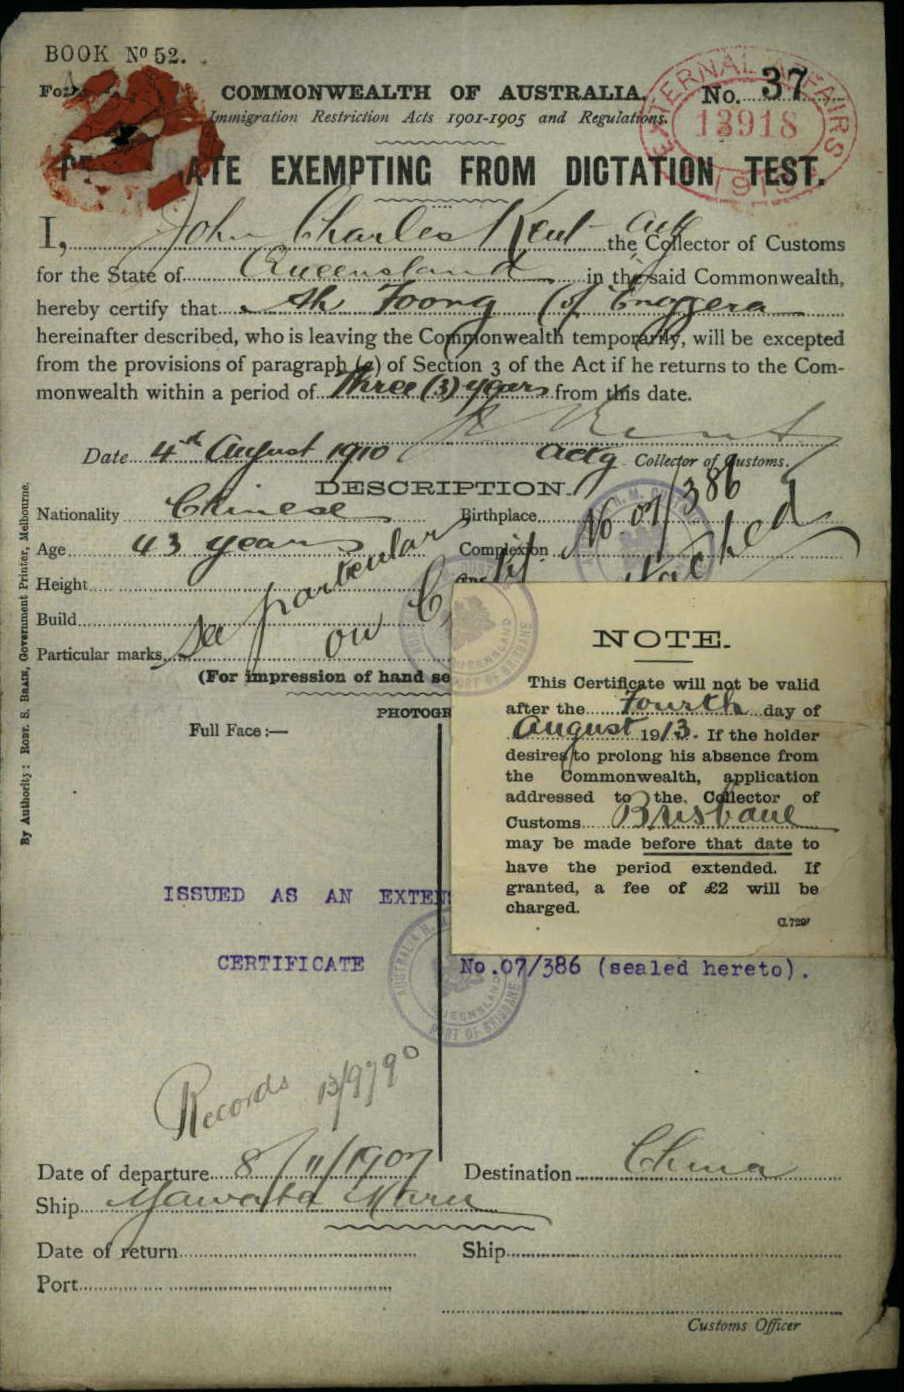 BOOK No 52.
For
COMMONWEALTH OF AUSTRALIA.
No. 37
EXTERNAL AFFAIRS
13918
Immigration Restriction Acts 1901-1905 and Regulations.
ATE EXEMPTING FROM DICTATION TEST.
I, John Charles Kent actg the Collector of Customs
for the State of Queensland in the said Commonwealth,
hereby certify that Ah Foong (of Enoggera
hereinafter described, who is leaving the Commonwealth temporarily, will be excepted
from the provisions of paragraph (a) of Section 3 of the Act if he returns to the Com-
monwealth within a period of three (3) years from this date.
J C Kent
Date 4th August 1910
actg Collector of Customs.
DESCRIPTION.
Nationality Chinese
Birthplace
Age 43 years
Complexion
Height
Build
Particular marks
See particulars
on Cert. No 07/386
attached
(For impression of hand se
PHOTOGR
Full Face:—
NOTE.
This Certificate will not be valid
after the Fourth day of
August 1913. If the holder
desires to prolong his absence from
the Commonwealth, application
addressed to the Collector of
Customs Brisbane
may be made before that date to
have the period extended. If
granted, a fee of £2 will be
charged.
C.729
ISSUED AS AN EXTEN
CERTIFICATE No.07/386 (sealed hereto).
PORT OF BRISBANE
Records 13/9790
Date of departure 8/11/1907
Destination China
Ship Yawata Maru
Date of return
Ship
Port
Customs Officer
By Authority: ROBT. S. BRAIN, Government Printer, Melbourne.